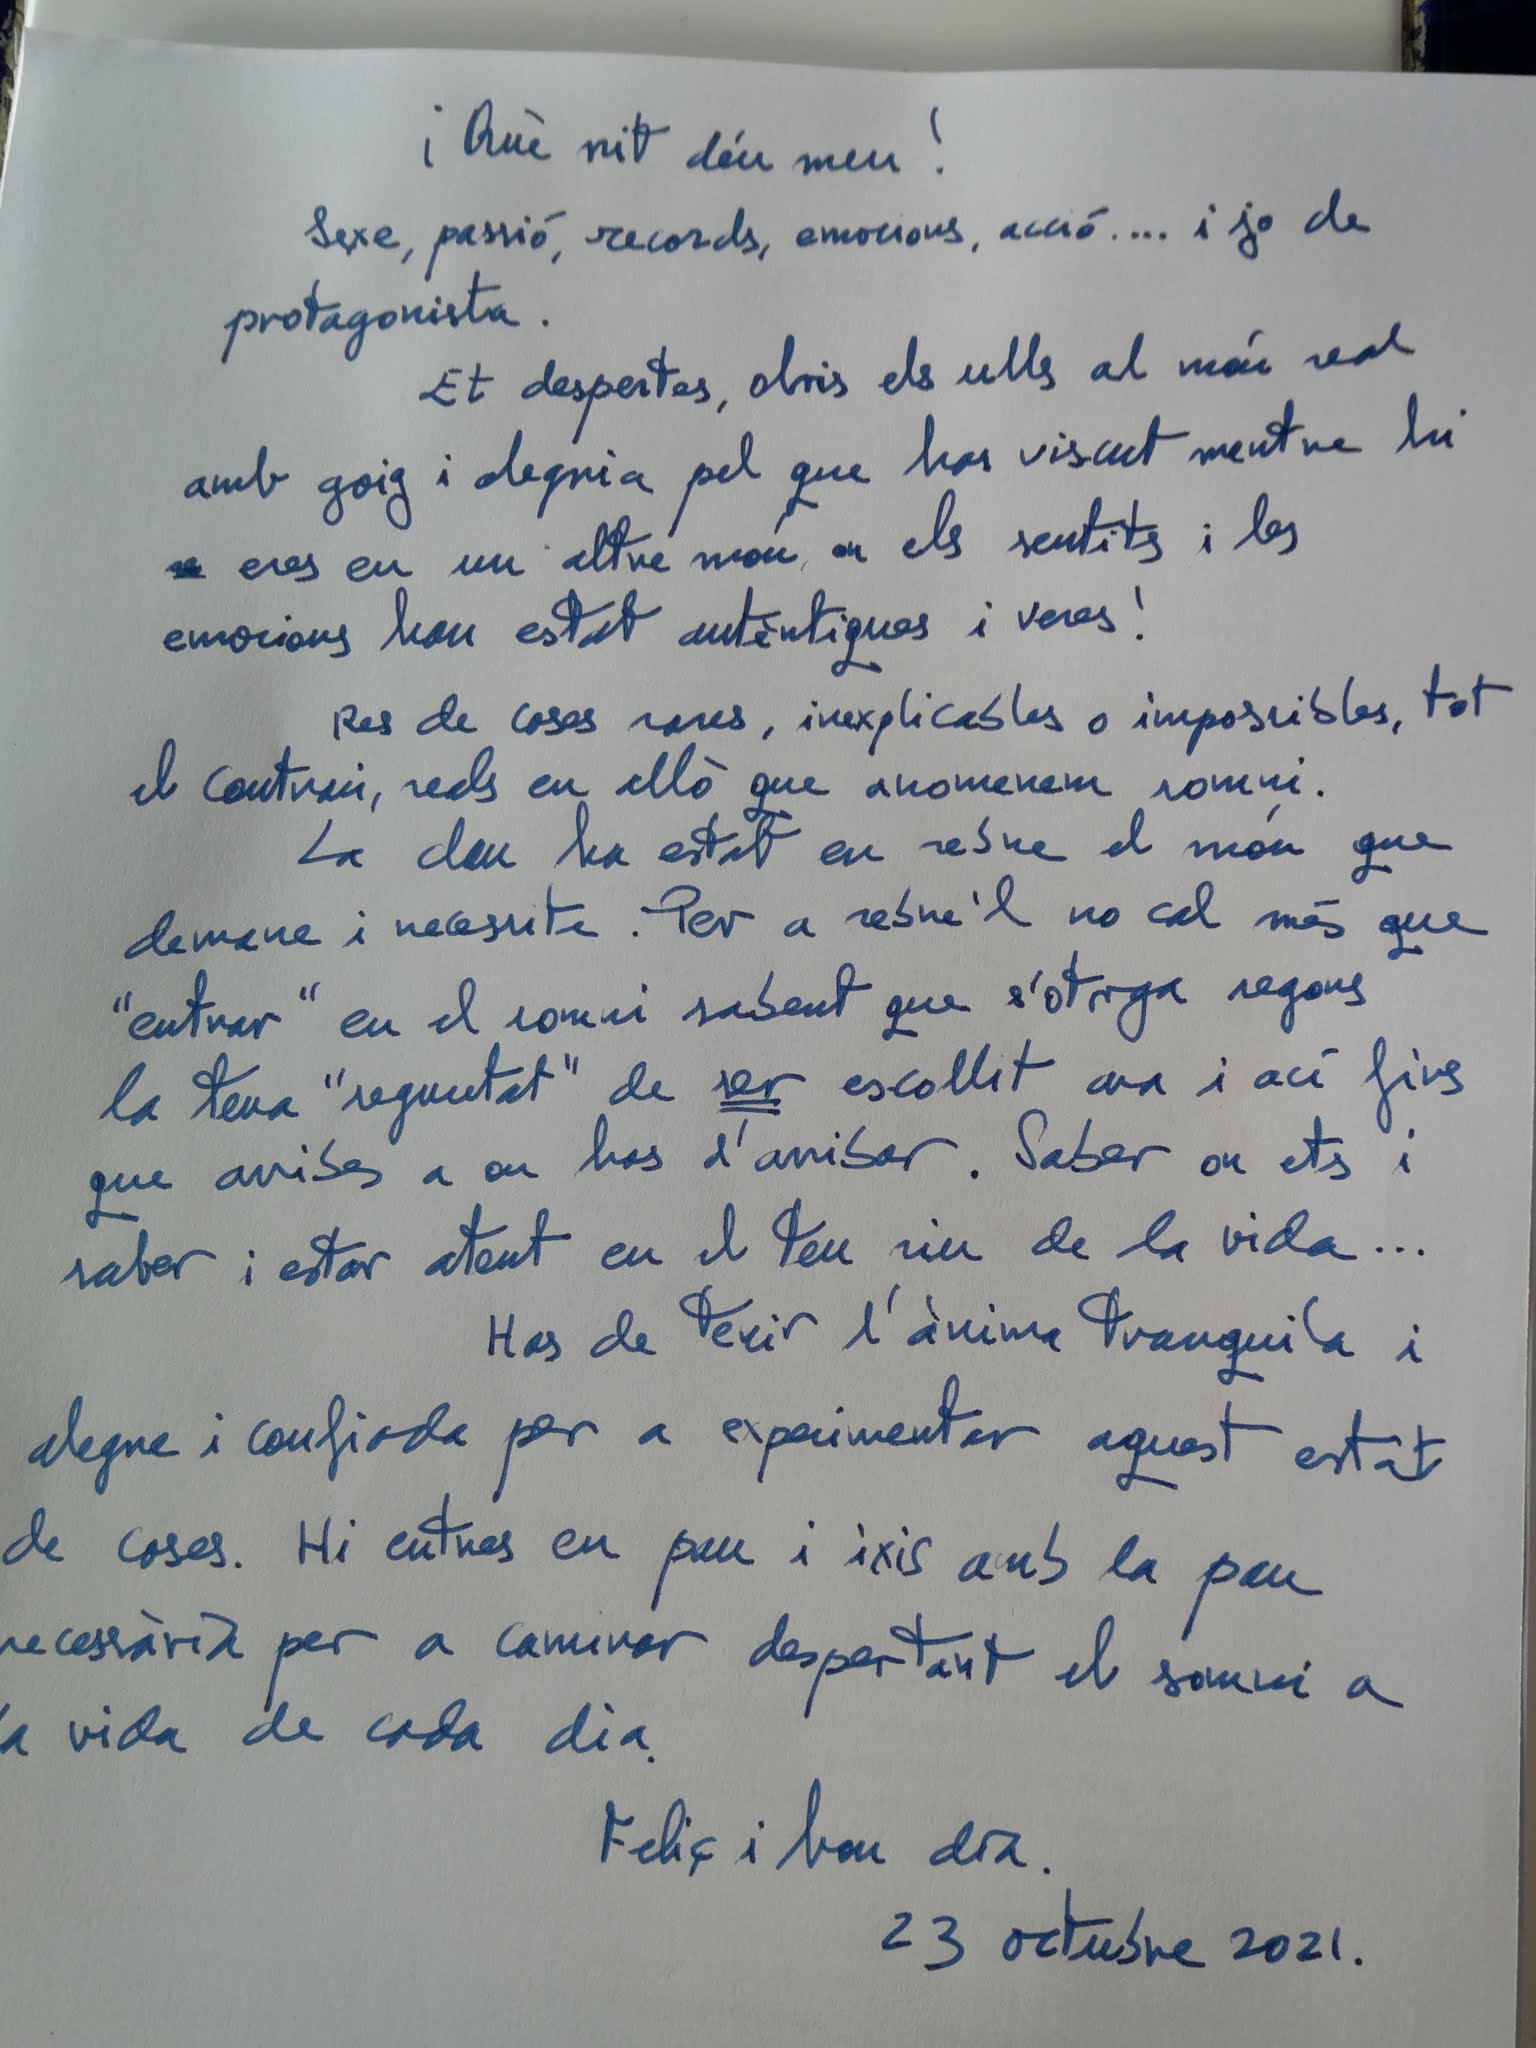 ¡Què nit déu meu!
Sexe, passió, records, emocions, acció.... i jo de
protagonista.
Et despertes, obris els ulls al món real
amb goig i alegria pel que has viscut mentre hi
eres en un altre món on els sentits i les
emocions han estat autèntiques i veres!
Res de coses rares, inexplicables o impossibles, tot
el contrari, reals en allò que anomenem somni.
La clau ha estat en rebre el món que
demane i necessite. Per a rebre'l no cal més que
"entrar" en el somni sabent que s'otorga segons
la teua "seguretat" de ser escollit ara i ací fins
que arribes a on has d'arribar. Saber on ets i
saber i estar atent en el teu riu de la vida...
Has de tenir l'ànima tranquila i
alegre i confiada per a experimentar aquest estat
de coses. Hi entres en pau i ixis amb la pau
necessària per a caminar despertant el somni a
la vida de cada dia.
Feliç i bon dia.
23 octubre 2021.